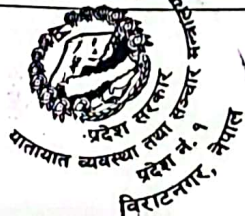 प्रदेश सरकार
यातायात व्यवस्था तथा सञ्चार
प्रदेश नं. १
विराटनगर, नेपाल